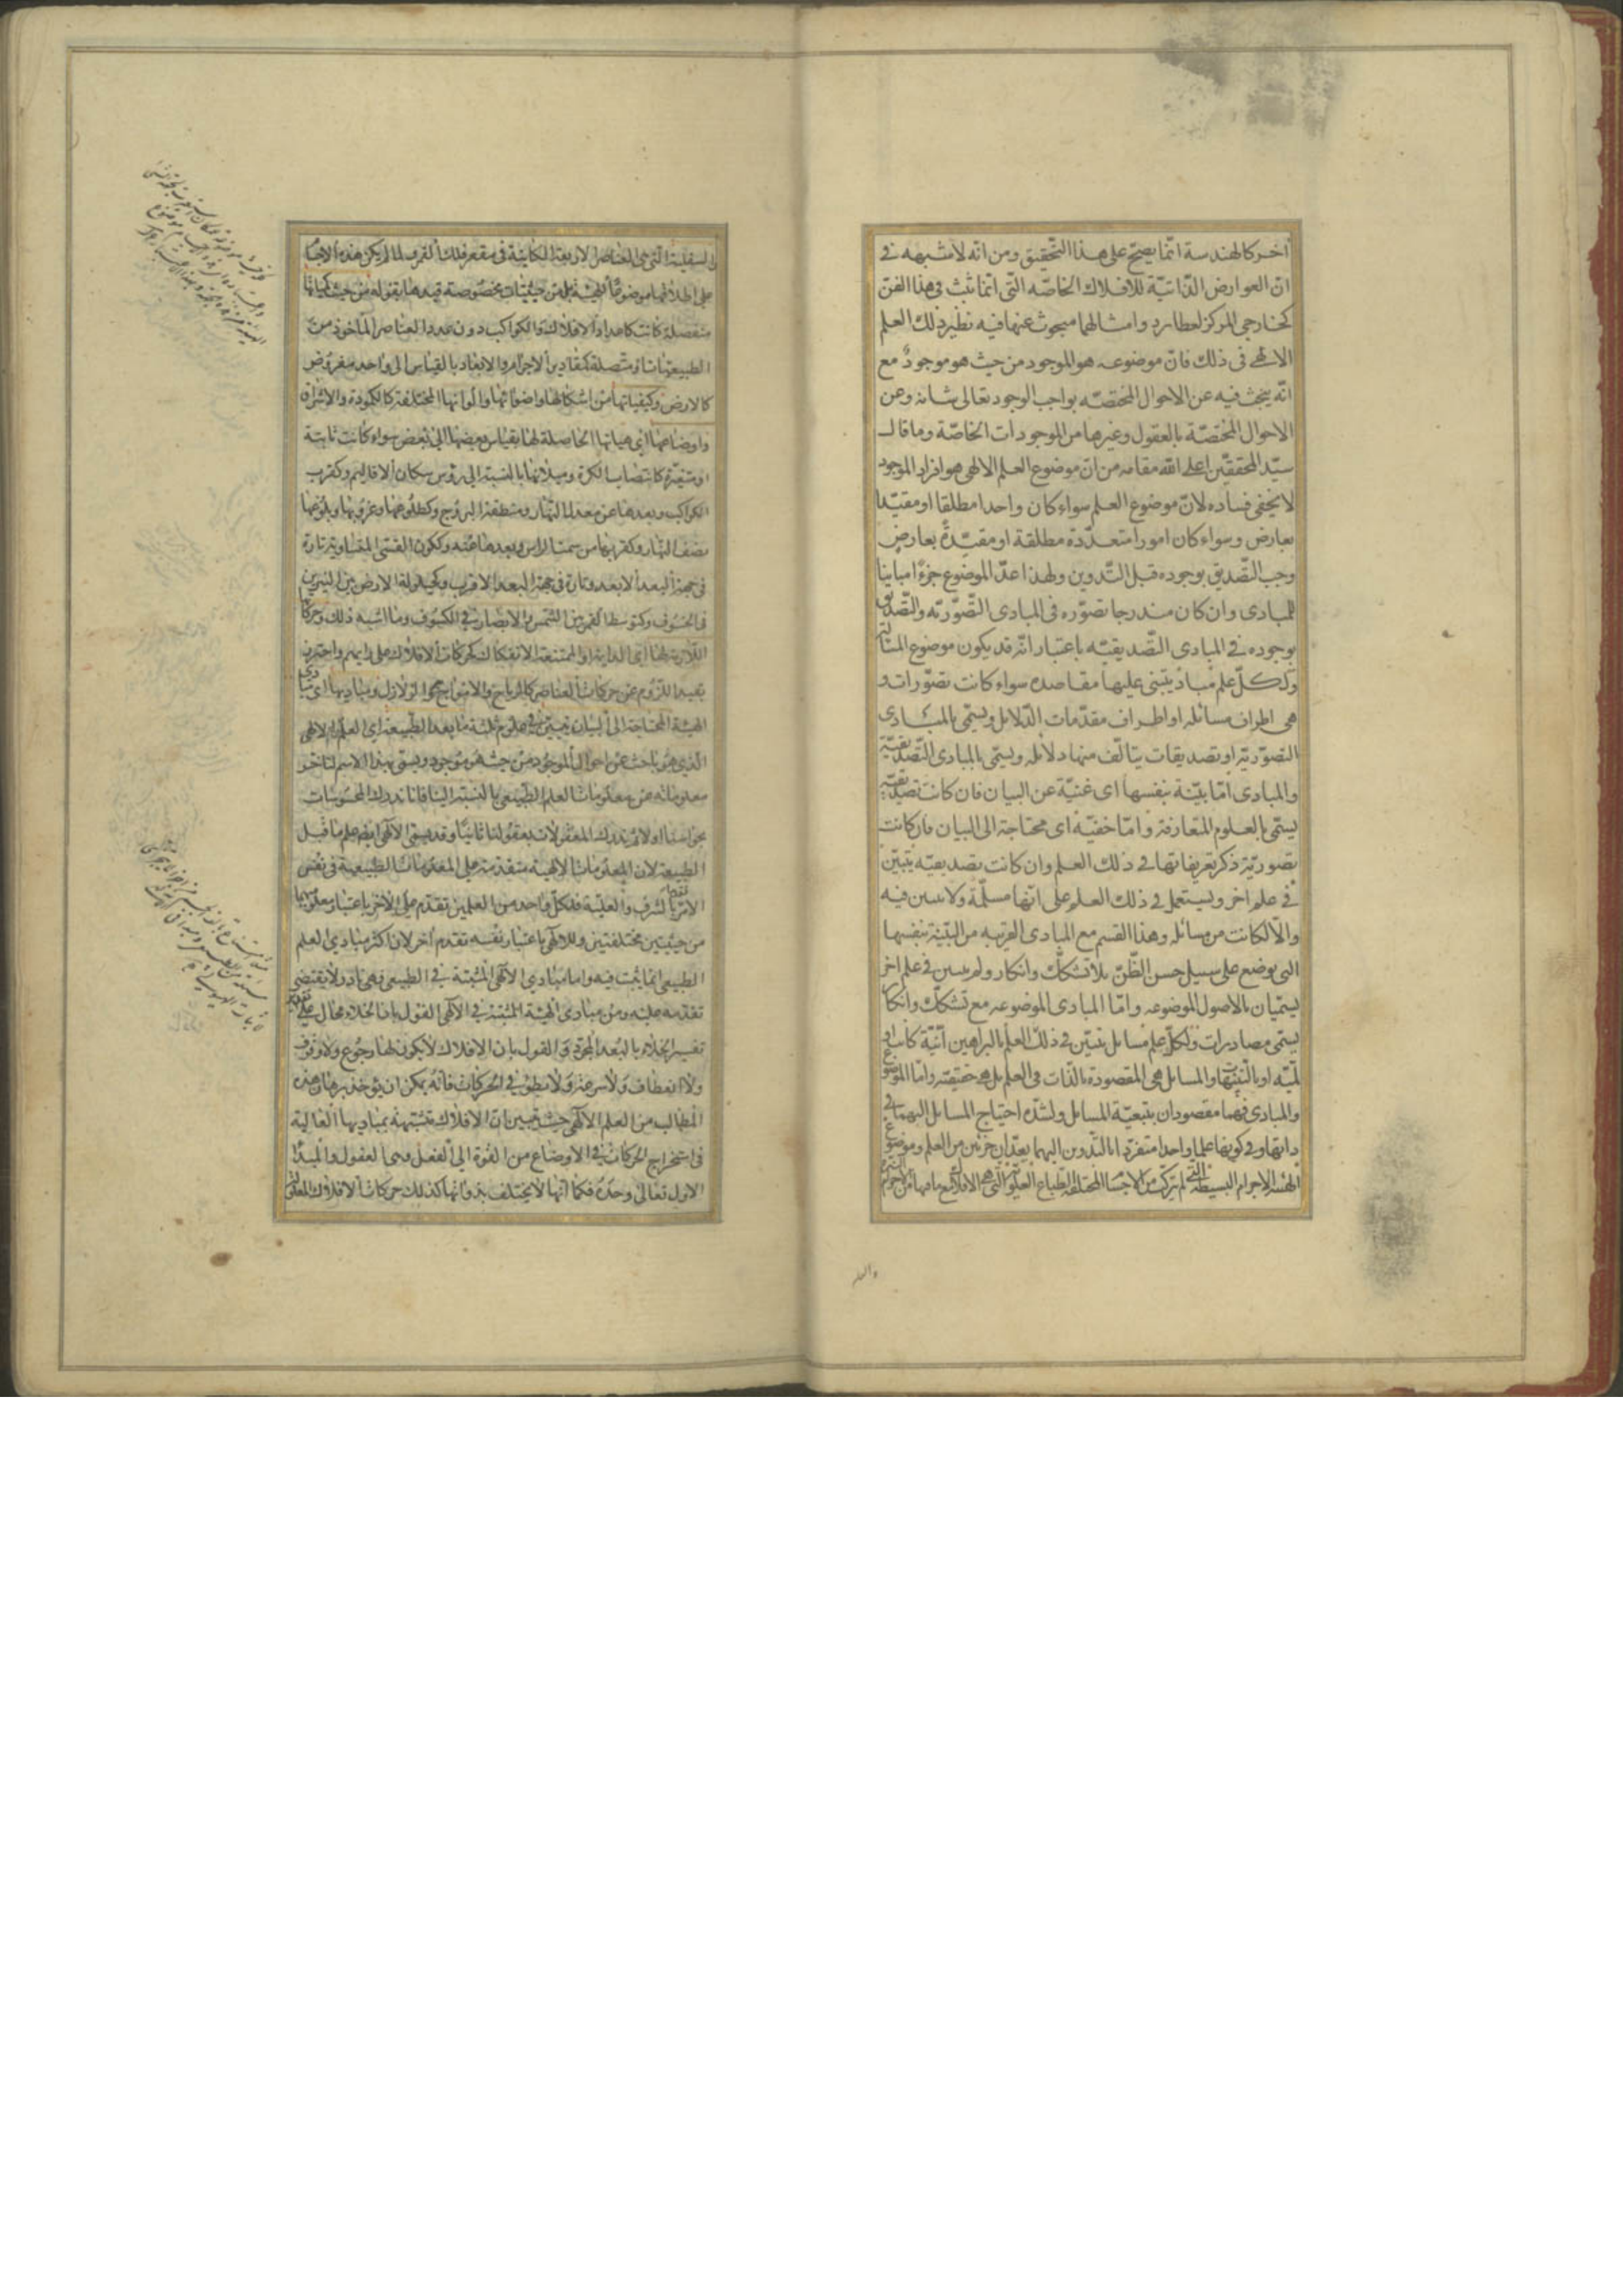 آخر كالهندسة انّما يصحّ على هذا التحقيق ومن انّه لا شبهه فى
انّ العوارض الذّاتيّة للافلاك الخاصّه التّى انّما تثبت فى هذا الفنّ
كخارجى المركز لعطارد وامثالهما مبحوث عنها فيه نظير ذلك العلم
الالهى فى ذلك فانّ موضوعه هو الموجود من حيث هو موجودٌ مع
انّه يبحث فيه عن الاحوال المختصّه بواجب الوجود تعالى شانه وعن
الاحوال المختصّة بالعقول وغيرها من الموجودات الخاصّة وما قال
سيّد المحققيّن اعلى اللّه مقامه من انّ موضوع العلم الالهى هو افراد الموجود
لا يخفى فساده لانّ موضوع العلم سواء كان واحدا مطلقا او مقيّدا
بعارض وسواء كان امورا متعدّدة مطلقة او مقيّدةً بعارضٍ
وجب التّصديق بوجوده قبل التّدوين ولهذا عدّ الموضوع جزءًا مباينا
للمبادى وان كان مندرجا تصوّره فى المبادى التّصوّريّه والتّصديق
بوجوده فى المبادى التّصديقيّه باعتبار انّه قد يكون موضوع المسائل
ولكلّ علم مبادٍ يبتنى عليها مقاصده سواء كانت تصوّرات و
هى اطراف مسائله او اطراف مقدّمات الدّلايل ويسمّى بالمبادى
التصوّريّة او تصديقات يتالّف منها دلائله ويسمّى بالمبادى التّصديقيّة
والمبادى امّا بيّنة بنفسها اى غنيّة عن البيان فان كانت تصديقيّه
يسمّى بالعلوم المتعارفة وامّا خفيّه اى محتاجة الى البيان فان كانت
تصوريّة ذكر تعريفاتها فى ذلك العلم وان كانت تصديقيّه يتبيّن
فى علم اخر ويستعمل فى ذلك العلم على انّها مسلّمة ولا يبين فيه
والّا لكانت من مسائله وهذا القسم مع المبادى القريبه من البيّنة بنفسها
التى يوضع على سبيل حسن الظّنّ بلا تشكّك وانكار ولم يبين فى علم اخر
يسمّيان بالاصول الموضوعه وامّا المبادى الموضوعه مع تشكّك وانكار
يسمّى مصادرات ولكلّ علم مسايل يتبيّن فى ذلك العلم بالبراهين انّيّة كانت او
لمّيّه او بالتّنبيهات والمسايل هى المقصودة بالذّات فى العلم بل هى حقيقته وامّا الموضوع
والمبادى فهما مقصودان بتبعيّة المسايل ولشدّه احتياج المسايل اليهما فى
ذاتها وفى كونها علما واحدا منفردا بالتّدوين اليهما يعدّان جزئين من العلم وموضوع
الهيئة الاجرام البسيطة التى لم يتركّب من الاجسام المختلفة الطّبايع العلويّة التّى هى الافلاك مع ما فيها من الاجرام
والسفلية التى هى العناصر الاربعة الكاينة فى مقعر فلك القمر ولما لم يكن هذه الاجسام
على اطلاقها موضوعا للهيئة بل من حيثيات مخصوصة قيدها بقوله من حيث كمياتها
منفصلة كانت كاعداد الافلاك والكواكب دون عدد العناصر الماخوذ من
الطبيعيات او متصلة كمقادير الاجرام والابعاد بالقياس الى واحد مفروض
كالارض وكيفياتها من اشكالها واضوائها والوانها المختلفة كالكمودة والاشراق
واوضاعها اى هيئاتها الحاصلة لها بقياس بعضها الى بعض سواء كانت ثابتة
او متغيّرة كانتصاب الكرة وميلانها بالنسبة الى رؤس سكان الاقاليم وكقرب
الكواكب وبعدها عن معدل النّهار ومنطقة البروج وكطلوعها وغروبها وبلوغها
نصف النهار وكقربها من سمت الراس وبعدها عنه وككون القسىّ المتساوية تارة
فى جهة البعد الابعد وتارة فى جهة البعد الاقرب وكحيلولة الارض بين النيّرين
فى الخسوف وكتوسط القمر بين الشمس والابصار فى الكسوف وما اشبه ذلك وحركاتها
اللّازمة لها اى الدايمة او الممتنعة الانفكاك كحركات الافلاك على رايهم واحترز
بقيد اللزوم عن حركات العناصر كالرياح والامواج والزلازل ومباديها اى مبادى
الهيئة المحتاجة الى البيان يتبيّن فى علوم ثلثة ما بعد الطّبيعة اى العلم الالهى
الّذى هو باحث عن احوال الموجود من حيث هو موجود ويسمّى بهذا الاسم لتاخّر
معلوماته عن معلومات العلم الطّبيعى بالنسبة الينا فانا ندرك المحسوسات
بحواسنا اولا ثم ندرك المعقولات بعقولنا ثانيًا وقد يسمّى الالهى ايضا علم ما قبل
الطبيعة لان المعلومات الالهية متقدمة على المعلومات الطبيعية فى نفس
الامر بالشرف والعليّة فلكل واحد من العلمين تقدم على الاخر باعتبار معلوماتهما
من حيثيتين مختلفتين وللالهى باعتبار نفسه تقدم اخر لان اكثر مبادى العلم
الطبيعى انما يثبت فيه واما مبادى الالهى المثبتة فى الطبيعى فهى نادر ولا يقتضى
تقدمه عليه ومن مبادى الهيئة المثبتة فى الالهى القول بان الخلاء محال على تقدير
تفسير الخلاء بالبعد المجرّد والقول بان الافلاك لا يكون لها رجوع ولا وقوف
ولا انعطاف ولا سرعة ولا بطؤ فى الحركات فانه يمكن ان يؤخذ برهان هذه
المطالب من العلم الالهى حيث تبين ان الافلاك متشبّهة بمباديها العالية
فى استخراج الحركات فى الاوضاع من القوة الى الفعل وهى العقول والمبدأ
الاول تعالى وحده فكما انّها لا يختلف بذواتها كذلك حركات الافلاك المعلولة